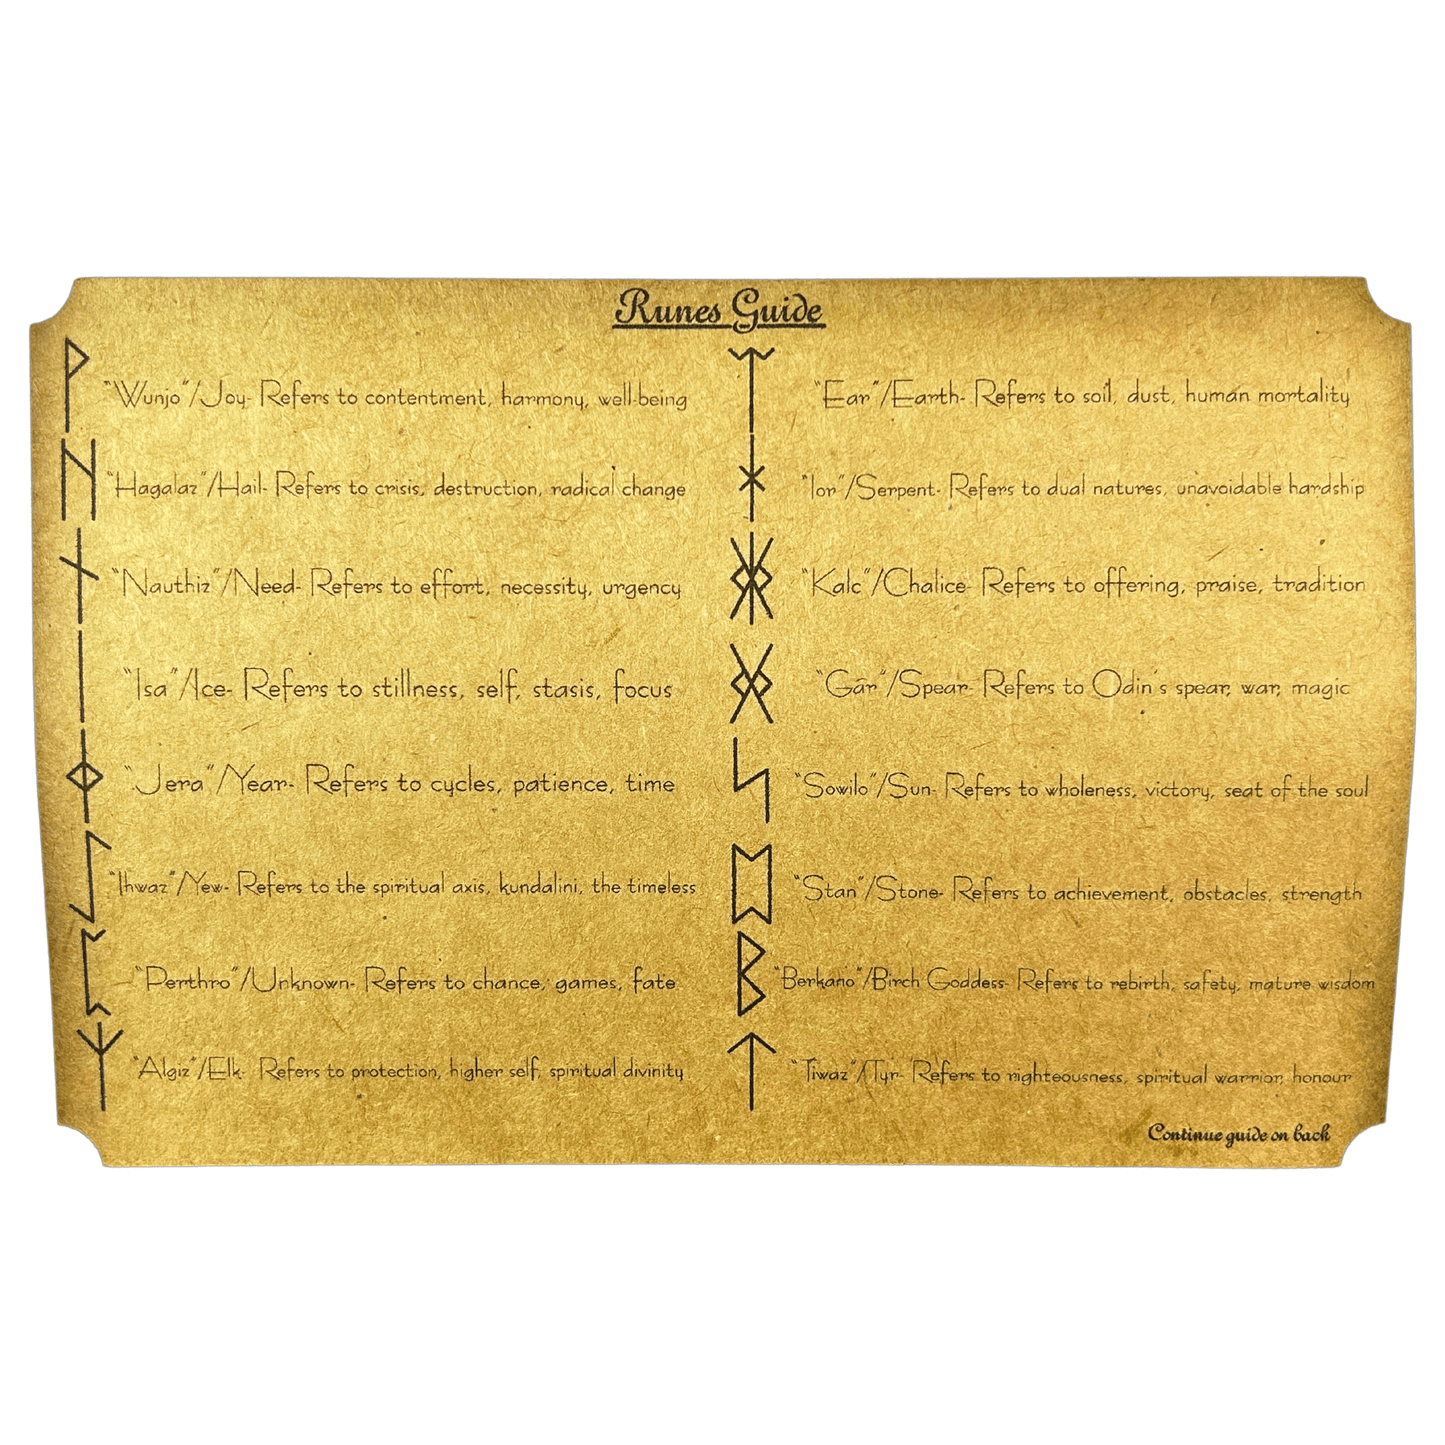 Runes Guide
ᚹ "Wunjo"/Joy- Refers to contentment, harmony, well-being
ᚻ "Hagalaz"/Hail- Refers to crisis, destruction, radical change
ᚾ "Nauthiz"/Need- Refers to effort, necessity, urgency
ᛁ "Isa"/Ice- Refers to stillness, self, stasis, focus
ᛄ "Jera"/Year- Refers to cycles, patience, time
ᛇ "Ihwaz"/Yew- Refers to the spiritual axis, kundalini, the timeless
ᛈ "Perthro"/Unknown- Refers to chance, games, fate
ᛉ "Algiz"/Elk- Refers to protection, higher self, spiritual divinity
ᛠ "Ear"/Earth- Refers to soil, dust, human mortality
ᛡ "Ior"/Serpent- Refers to dual natures, unavoidable hardship
ᛤ "Kalc"/Chalice- Refers to offering, praise, tradition
ᚸ "Gār"/Spear- Refers to Odin's spear, war, magic
ᛋ "Sowilo"/Sun- Refers to wholeness, victory, seat of the soul
ᛥ "Stan"/Stone- Refers to achievement, obstacles, strength
ᛒ "Berkano"/Birch Goddess- Refers to rebirth, safety, mature wisdom
ᛏ "Tiwaz"/Tyr- Refers to righteousness, spiritual warrior, honour
Continue guide on back